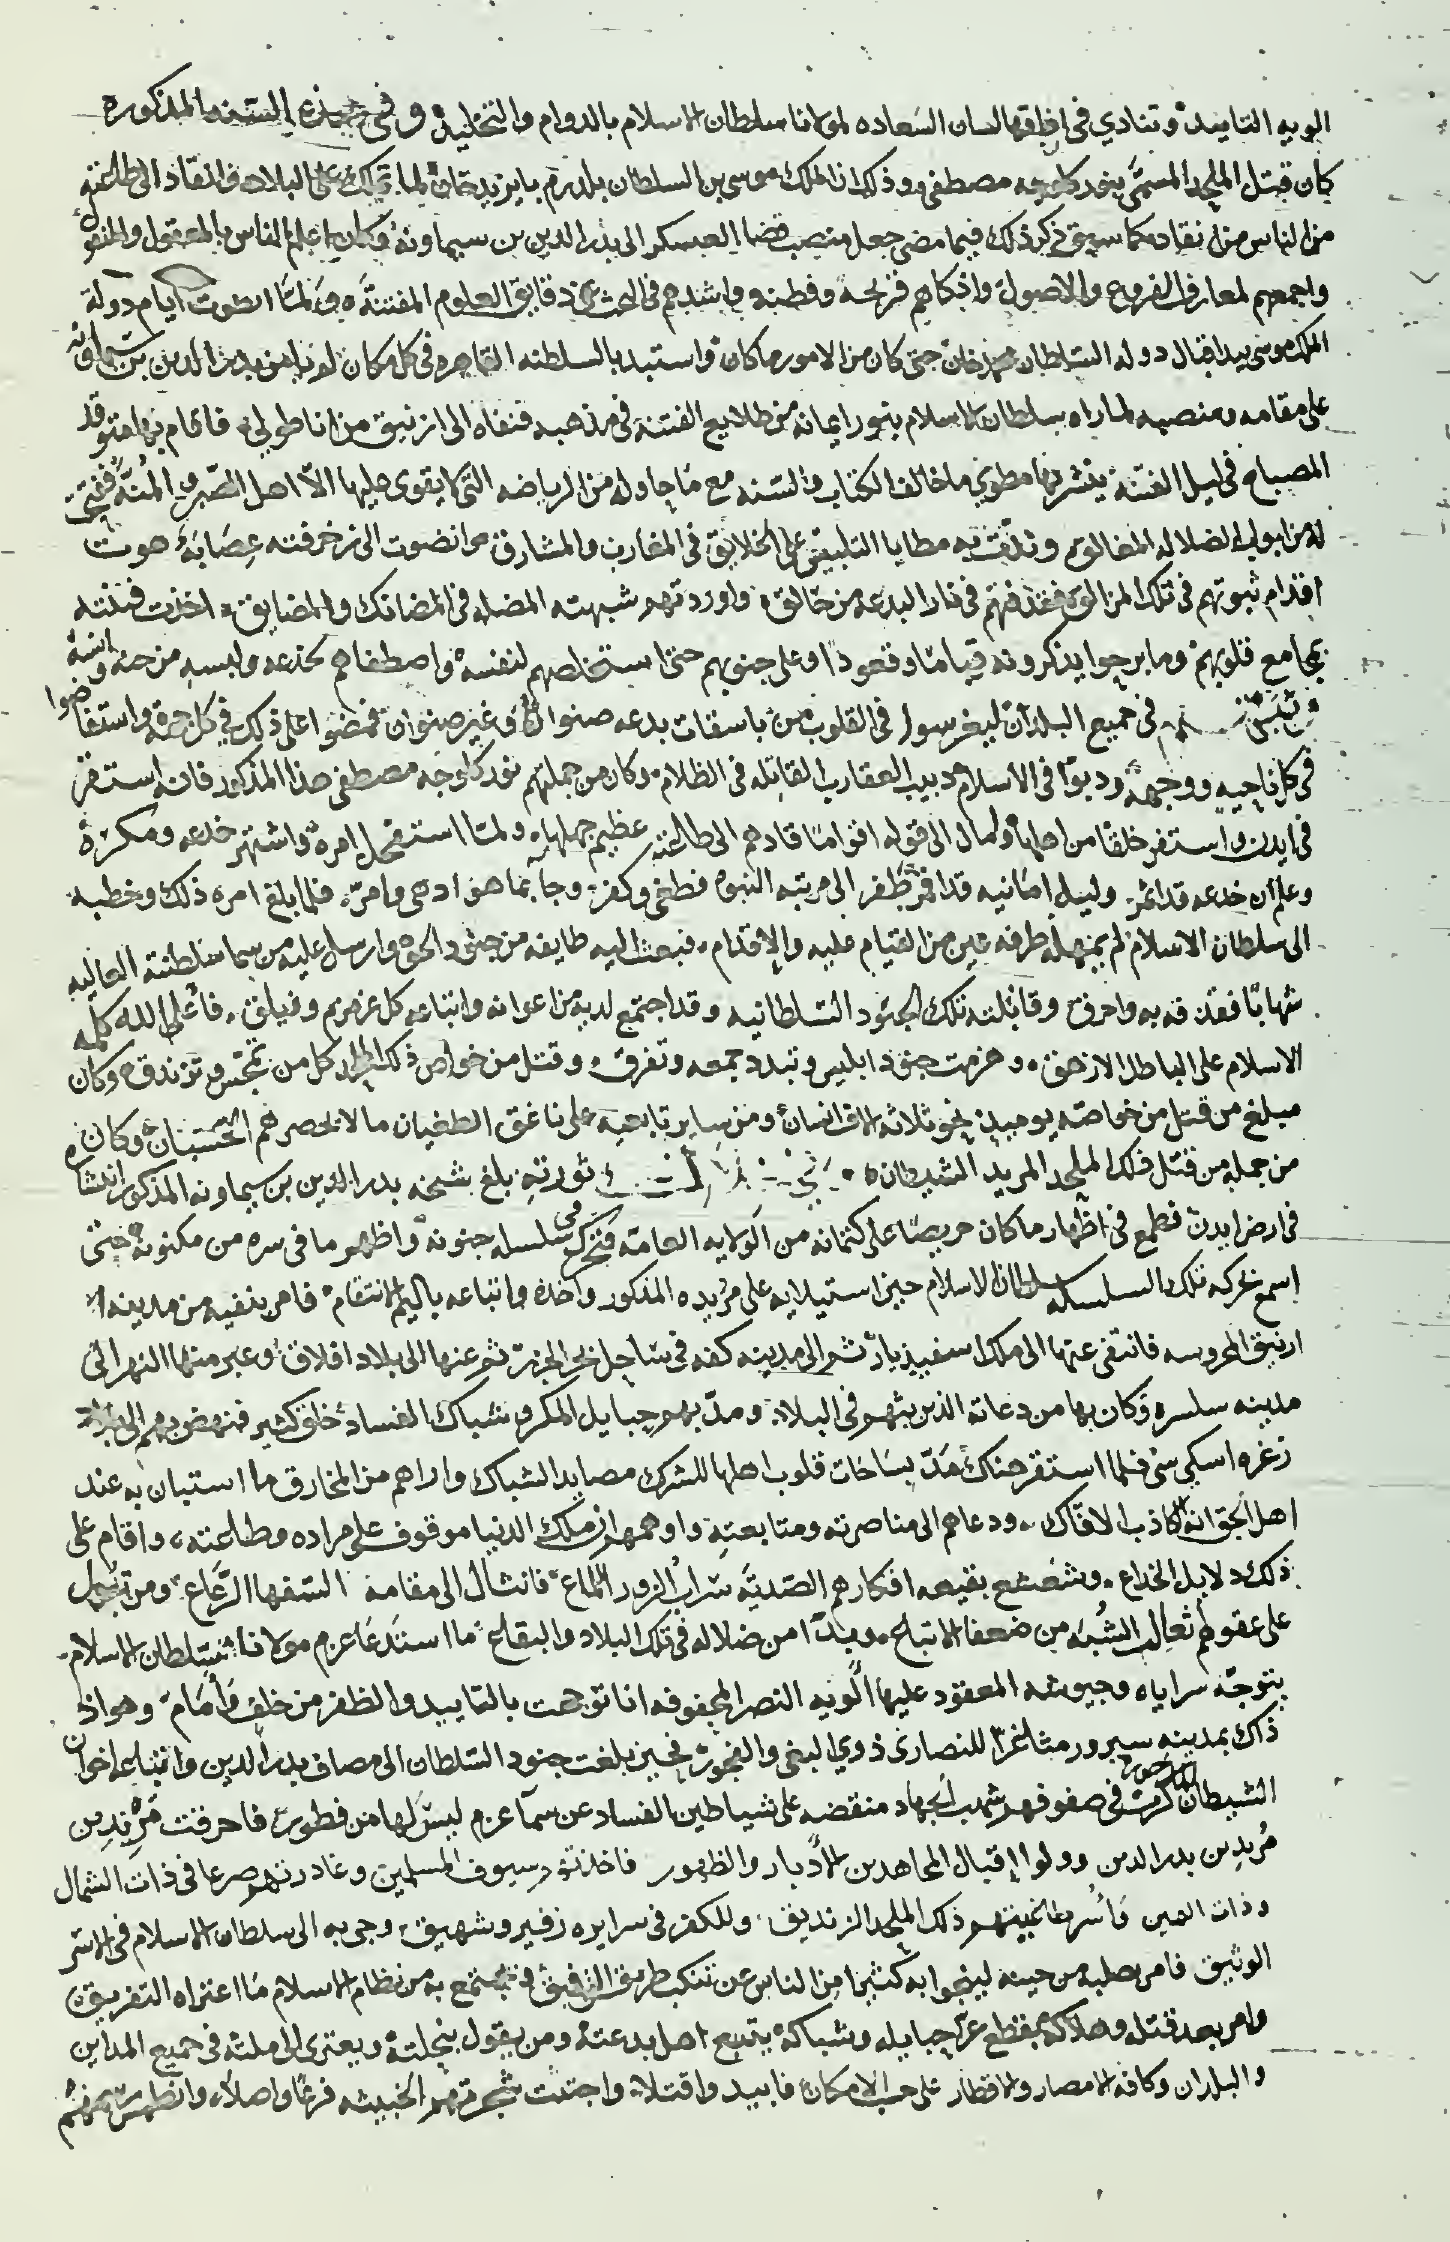 الويه التاييد وتنادي في افاقها لسان السعاده لمولانا سلطان الاسلام بالدوام والتخليد وفي هذه السنه المذكوره
كان قتل الملحد المسمى بنور كلوجه مصطفى وذلك ان الملك موسى بن السلطان يلدرم بايزيد خان لما تملك على البلاد وانقاد الى طاعته
من الناس من انقاد كما سبق ذكر ذلك فيما مضى جعل منصب قضا العسكر الى بدر الدين بن سيماونه وكان اعلم الناس بالمعقول والمنقول
واجمعهم لمعارف الفروع والاصول واذكاهم قريحة وفطنه واشدهم في البحث عن دقايق العلوم المفتنة ولما انطوت ايام دولة
الملك موسى بيد اقبال دولة السلطان محمد خان حتى كان من الامور ما كان واستبد بالسلطنه القاهره في كل مكان لم يامن بدر الدين بن سيماونه
على مقامه ومنصبه لما راه سلطان الاسلام بنور ايمانه من طلايع الفتنة في مذهبه فنفاه الى ازنيق من اناطولي فاقام بها متوقد
المصباح في ليل الفتنة ينشر بها مطوي ما خالف الكتاب والسنه مع ما حاوله من الرياضه التي لا يقوى عليها الا اهل الصبر والمنة ففتحت
له من ابواب الضلاله المغالق وتدفقت به مطايا التلبيس على الخلايق في المغارب والمشارق وانضوت الى زخرفته عصابة هوت
اقدام ثبوتهم في تلك المزالق فقذفتهم في نار البدعه من حالق واوردتهم شبهته المضله في المضانك والمضايق اخذت فتنته
بمجامع قلوبهم وما برحوا يذكرونه قياما وقعودا وعلى جنوبهم حتى استخلصهم لنفسه واصطفاهم لخدعه ولبسه من جنه وانسه
في جميع البلدان ليغرسوا في القلوب من باسقات بدعه صنوانا وغير صنوان فمضوا على ذلك في كل جهة واستفاضوا
في كل ناحيه ووجهة ودبوا في الاسلام دبيب العقارب القاتله في الظلام وكان من جملتهم نور كلوجه مصطفى هذا المذكور فانه استقر
في ايدن واستفز خلقا من اهلها ومال الى قوله اقواما قادهم الى طاعته عظيم جهلهم ولما استفحل امره واشتهر خدعه ومكره
وعلم ان خدعه قد اثمر وليل امانيه قد اقمر ظفر الى مرتبه النبوه فطغى وكفر وجا بما هو ادهى وامر فلما بلغ امره ذلك وخطبه
الى سلطان الاسلام لم يمهله طرفة عين من القيام عليه والاقدام فبعث اليه طايفه من جنود الحق وارسل عليه من سما سلطنته العاليه
شهابا فقذفه به واحرق وقاتلته تلك الجنود السلطانيه وقد اجتمع لديه من اعوانه واتباعه كل عرمرم وفيلق فاعلى الله كلمه
الاسلام على الباطل الازهق وهزمت جنود ابليس وتبدد جمعه وتفرق وقتل من خواص ذلك المارد كل من تمجس وتزندق وكان
مبلغ من قتل من خواصه يوميذ نحو ثلاثه الاف انسان ومن ساير تابعيه على ناعق الطغيان ما لا يحصرهم الحسبان وكان
من جمله من قتل ذلك الملحد المريد الشيطان ثورته بلغ شيخه بدر الدين بن سيماونه المذكور انتشار
في ارض ايدن فطمع في اظهار ما كان حريصا على كتمانه من الولايه العامة فتحرك في سلسله جنونه واظهر ما في سره من مكنونه حتى
اسمع تحركه تلك السلسله سلطان الاسلام حين استيلايه على مريده المذكور واخذه واتباعه باليم الانتقام فامر بنفيه من مدينه
ازنيق المحروسه فانتفى عنها الى ملك اسفنديار ثم الى مدينه كفه في ساحل بحر الخزر ثم عنها الى بلاد افلاق وعبر منها النهر الى
مدينه سلسره وكان بها من دعاته الذين بثهم في البلاد ومد بهم حبايل المكر وشباك الفساد خلق كثير فنهض بهم الى بلاد
زغره اسكي سي فلما استقر هناك مد بساحات قلوب اهلها للشرك مصايد الشباك واراهم من المخارق ما استبان به عند
اهل الحق انه الكاذب الافاك ودعاهم الى مناصرته ومتابعته واوهمهم ان ملك الدنيا موقوف على مراده وطاعته واقام على
ذلك دلايل الخداع وشعشع بقيعه افكارهم الصدية سراب الزور اللماع فانثال الى مقامه السفها الرعاع ومن تسول
على عقولهم ثعالب الشبه من ضعفا الاتباع وبدا من ضلاله في تلك البلاد والبقاع ما استدعا عزم مولانا سلطان الاسلام
بتوجه سراياه وجيوشه المعقود عليها الويه النصر المحفوفه انا توجهت بالتاييد والظفر من خلف وامام وهو اذ
ذاك بمدينه سيرور مثاغرا للنصارى ذوي البغي والفجور فحين بلغت جنود السلطان الى مصاف بدر الدين واتباعه اخوان
الشيطان كرت في صفوفهم شهب الجهاد منقضه على شياطين الفساد عن سمآ عزم ليس لها من فطور فاحرقت من
مريدين بدر الدين وولوا اقبال المجاهدين الادبار والظهور فاخذتهم سيوف المسلمين وغادرتهم صرعا في ذات الشمال
وذات اليمين واسر طاغيتهم ذلك الملحد الزنديق وللكفر في سرايره زفير وشهيق وجي به الى سلطان الاسلام في الاسر
الوثيق فامر بصلبه من حينه ليتعظوا به كثيرا من الناس عن تنكب طريق التوفيق ويجتمع به من نظام الاسلام ما اعتراه التفريق
وامر بعد قتله وهلاكه بمقطع عرى حبايله وشباكه بتتبع اهل بدعته ومن يقول بنحلته ويعتزى الى ملته في جميع المداين
والبلدان وكافه الامصار والاقطار على حسب الامكان فابيد واقتلا واجتثت شجرتهم الخبيثه فرعا واصلا